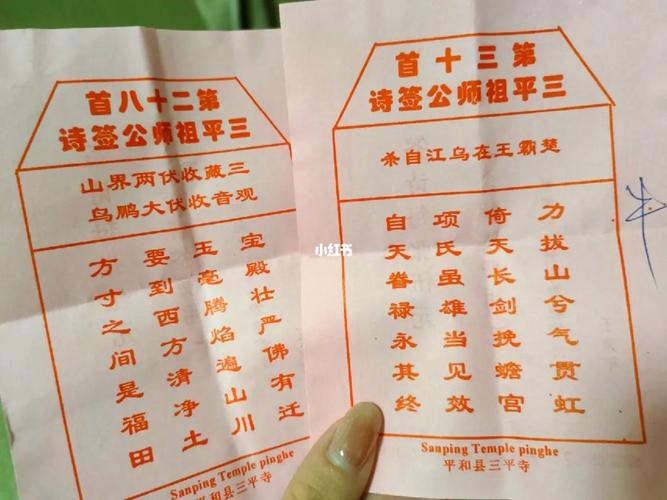 第二十八首
三平祖师公签诗
三藏收伏两界山
观音收伏大鹏鸟
宝殿壮严佛有迁
玉毫腾焰遍山川
要到西方清净土
方寸之间是福田
Sanping Temple pinghe
平和县三平寺
第三十首
三平祖师公签诗
楚霸王在乌江自杀
力拔山兮气贯虹
倚天长剑挽蟾宫
项氏虽雄当见效
自天眷禄永其终
Sanping Temple pinghe
平和县三平寺
小红书